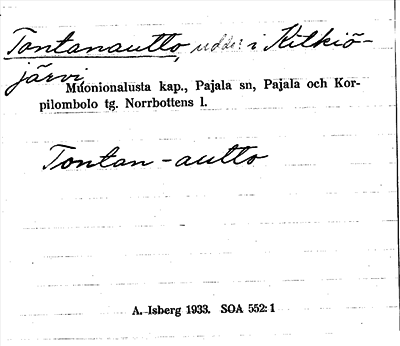 Tontanautto, udde i Kitkiö-
järvi
Muonionalusta kap., Pajala sn, Pajala och Kor-
pilombolo tg. Norrbottens l.
Tontan-autto
A. Isberg 1933. SOA 552:1